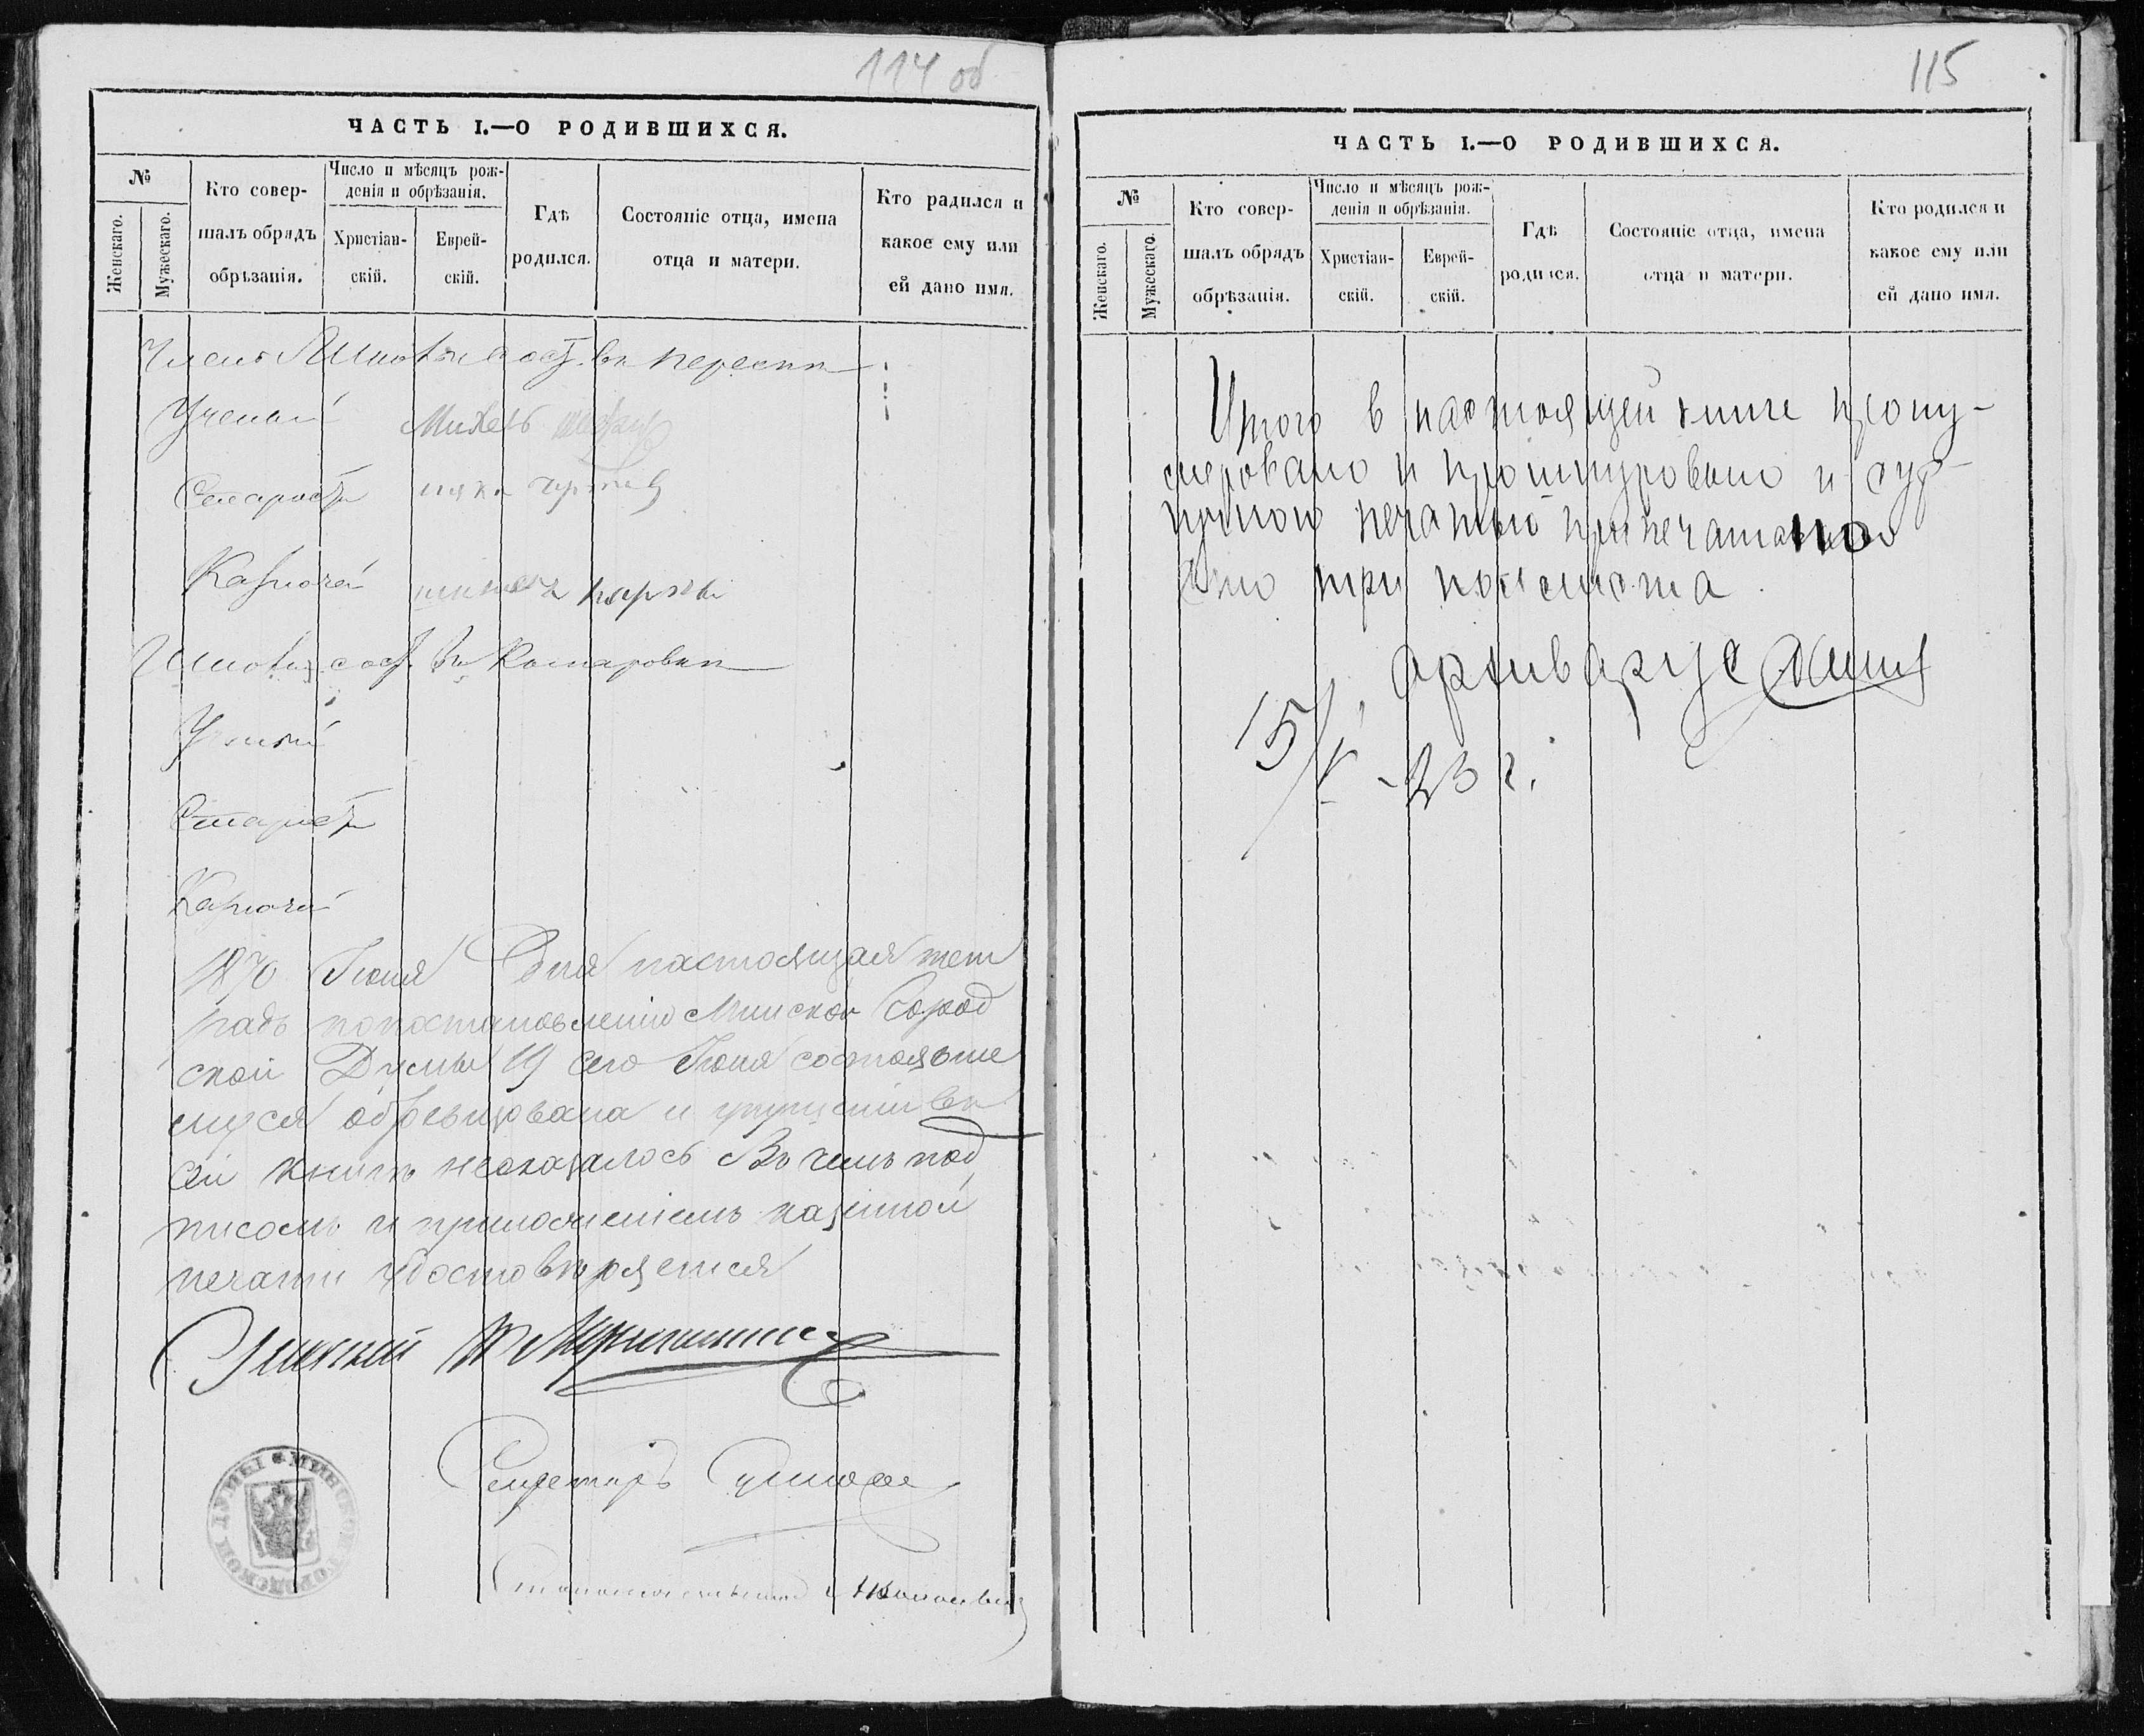 114 об
ЧАСТЬ I.—О РОДИВШИХСЯ.
№
Женскаго.
Мужескаго.
Кто совер-
шалъ обрядъ
обрѣзанія.
Число и мѣсяцъ рож-
денія и обрѣзанія.
Христіан-
скій.
Еврей-
скій.
Гдѣ
родился.
Состояніе отца, имена
отца и матери.
Кто радился и
какое ему или
ей дано имя.
Ученый Михель
Староста
Казначей
Ученый
Староста
Казначей
1870 Июня Дня настоящая тет
радь по постановленію Минской Город
ской Думы 19 сего Июня состоявше
муся обревизована и упущеній въ
сей книгѣ неоказалось Въ чемъ под
писомъ и приложеніемъ казенной
печати удостовѣряется
Гласный
Секретарь
МИНСКОЙ ГОРОДСКОЙ ДУМЫ
115
ЧАСТЬ I.—О РОДИВШИХСЯ.
№
Женскаго.
Мужескаго.
Кто совер-
шалъ обрядъ
обрѣзанія.
Число и мѣсяцъ рож-
денія и обрѣзанія.
Христіан-
скій.
Еврей-
скій.
Гдѣ
родился.
Состояніе отца, имена
отца и матери.
Кто родился и
какое ему или
ей дано имя.
Итого в настоящей книге прону-
меровано и прошнуровано и сур-
гучной печатью припечатано
сто три листа
архивариус
15/V -23 г.